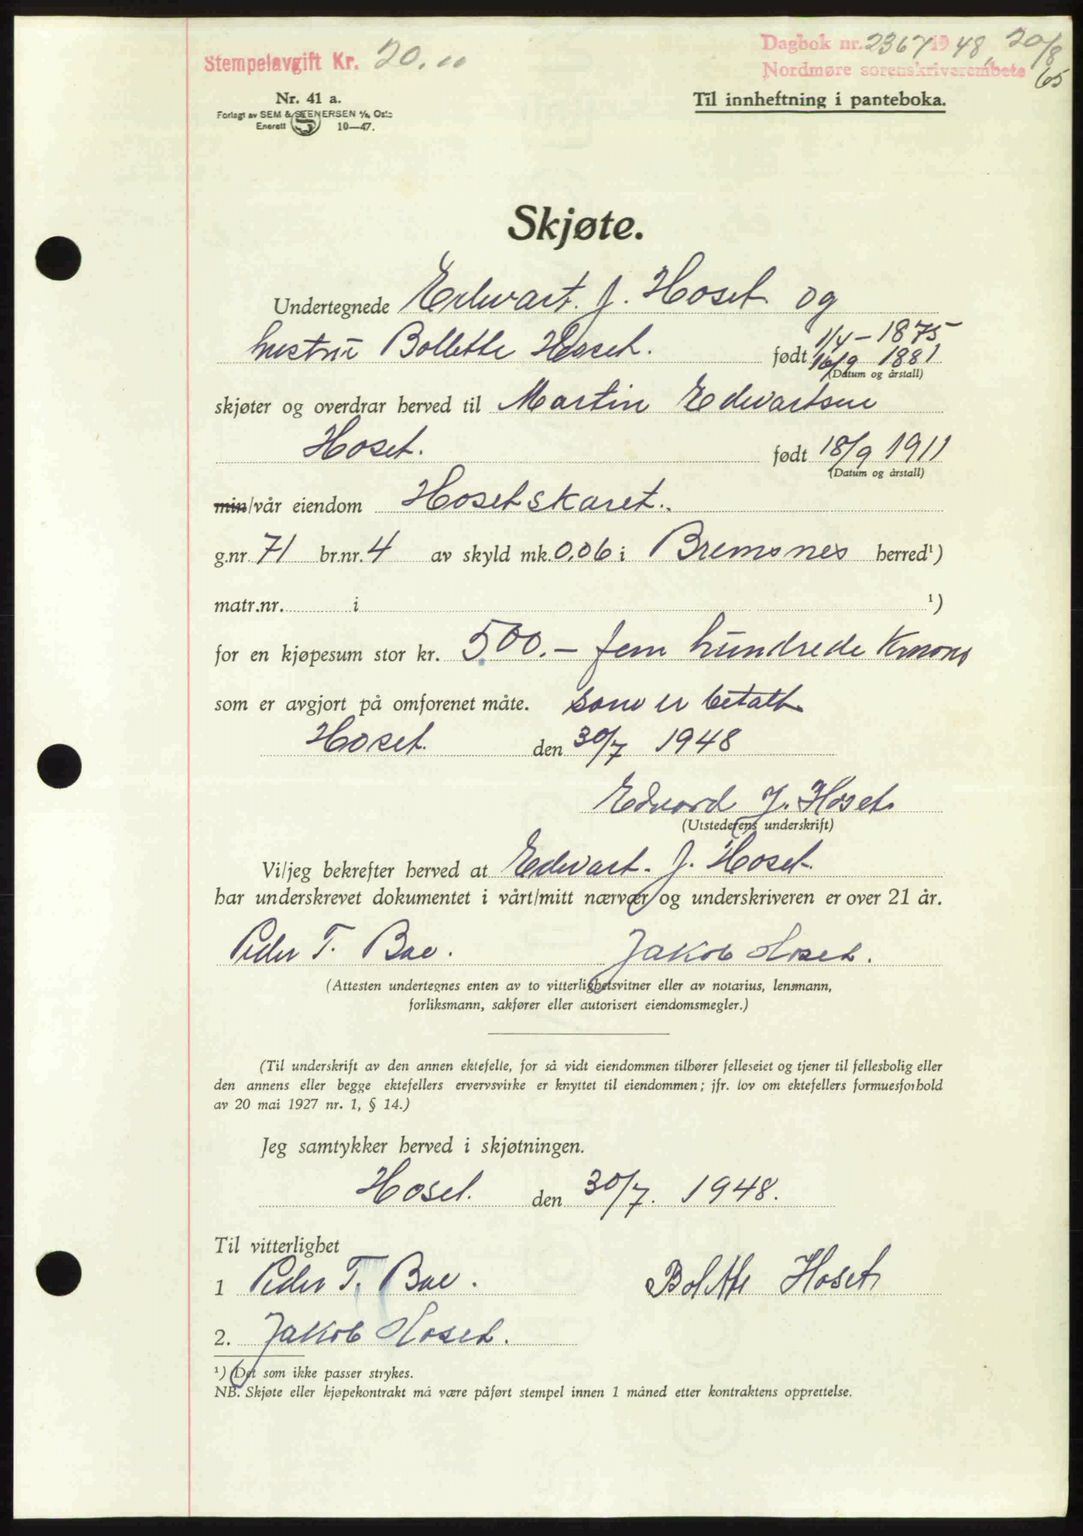 Stempelavgift Kr. 20.00
Dagbok nr. 2367 1948, 20/8
Nordmøre sorenskriverembete 65
Nr. 41 a.
Forlagt av SEM & STENERSEN A/S, Oslo
Enerett 10—47.
Til innheftning i panteboka.
Skjøte.
Undertegnede Edvart. J. Hoset og
hustrū Bollette Hoset. født 1/4 - 1875
16/9 1881
(Datum og årstall)
skjøter og overdrar herved til Martin Edvartsen
Hoset. født 18/9 1911
(Datum og årstall)
min/vår eiendom Hosetskaret.
g.nr. 71 br.nr. 4 av skyld mk. 0,06 i Bremsnes herred¹)
matr.nr. i ¹)
for en kjøpesum stor kr. 500.— fem hūndrede Kroner
som er avgjort på omforenet måte. som er betalt
Hoset. den 30/7 1948
Edvard J. Hoset
(Utstederens underskrift)
Vi/jeg bekrefter herved at Edvart. J. Hoset.
har underskrevet dokumentet i vårt/mitt nærvær og underskriveren er over 21 år.
Peder T. Bae. Jakob Hoset.
(Attesten undertegnes enten av to vitterlighetsvitner eller av notarius, lensmann,
forliksmann, sakfører eller autorisert eiendomsmegler.)
(Til underskrift av den annen ektefelle, for så vidt eiendommen tilhører felleseiet og tjener til fellesbolig eller
den annens eller begge ektefellers ervervsvirke er knyttet til eiendommen; jfr. lov om ektefellers formuesforhold
av 20 mai 1927 nr. 1, § 14.)
Jeg samtykker herved i skjøtningen.
Hoset. den 30/7. 1948.
Til vitterlighet
1 Peder T. Bae. Bolette Hoset
2. Jakob Hoset.
¹) Det som ikke passer strykes.
NB. Skjøte eller kjøpekontrakt må være påført stempel innen 1 måned etter kontraktens opprettelse.